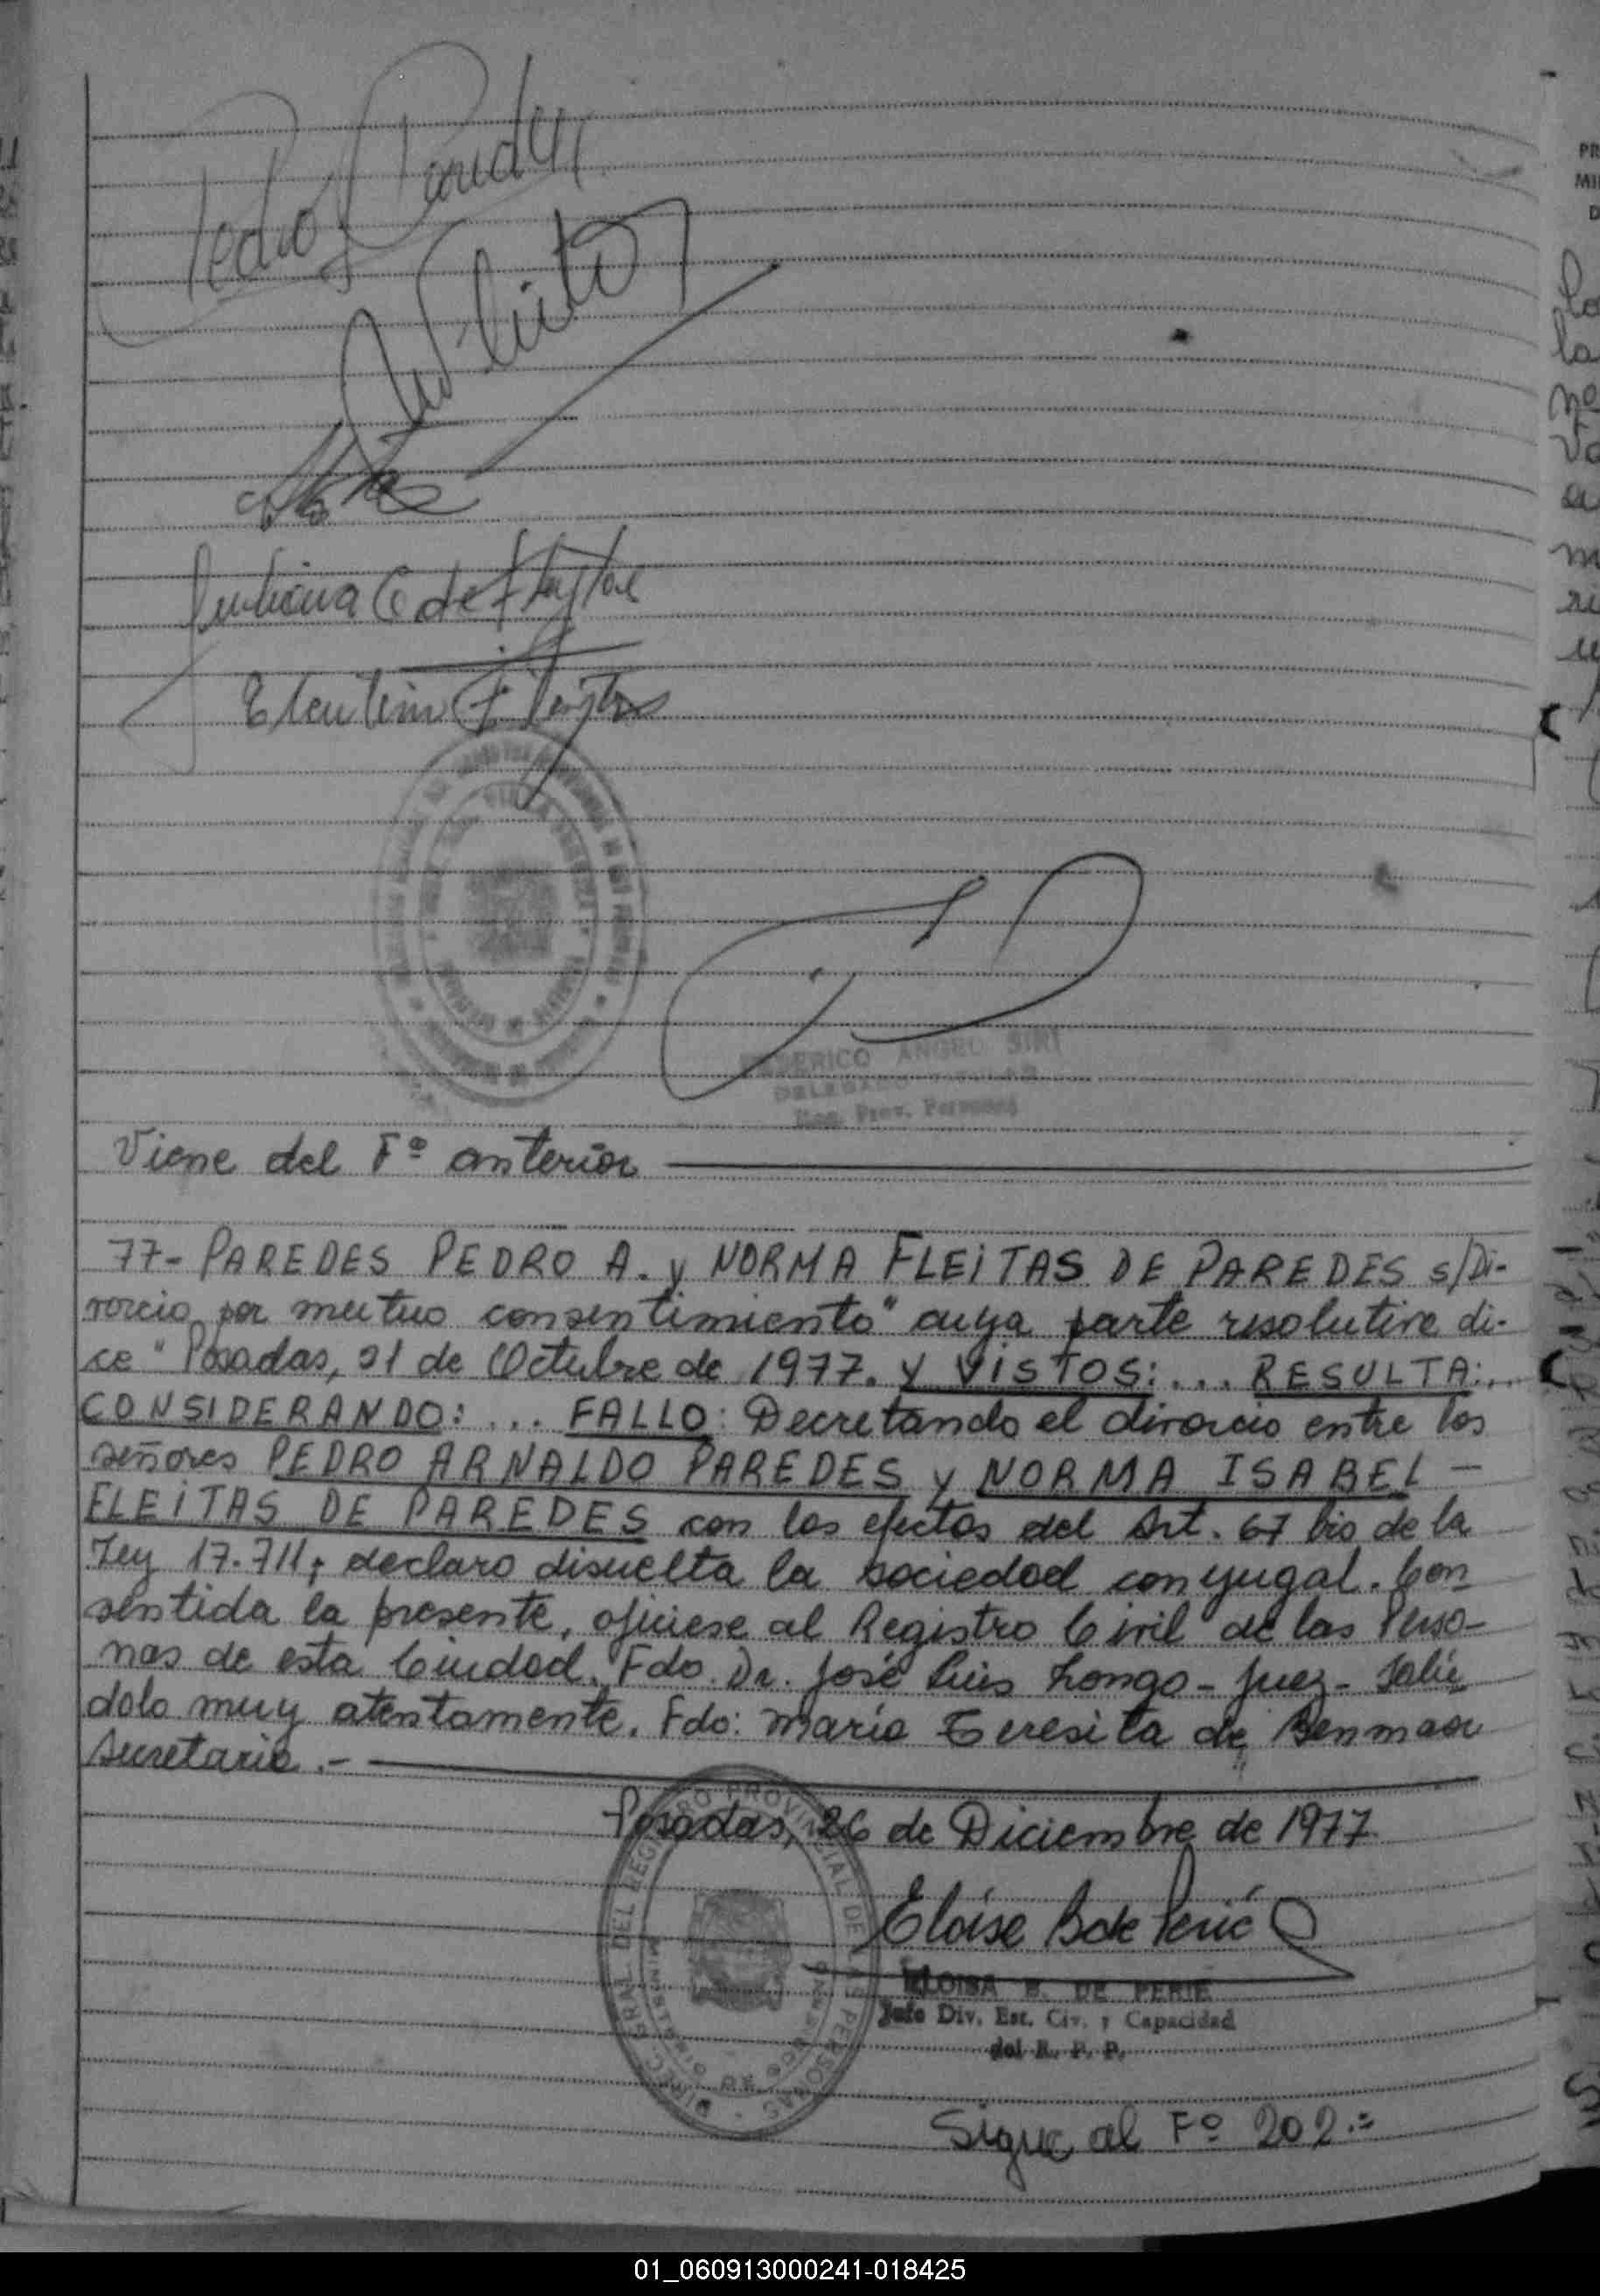 Pedro Paredes
Viene del Fº anterior
77- PAREDES PEDRO A. y NORMA FLEITAS DE PAREDES s/Di-
vorcio por mutuo consentimiento" cuya parte resolutiva di-
ce "Posadas, 31 de Octubre de 1977. Y VISTOS:... RESULTA:...
CONSIDERANDO: ... FALLO: Decretando el divorcio entre los
señores PEDRO ARNALDO PAREDES y NORMA ISABEL -
FLEITAS DE PAREDES con los efectos del Art. 67 bis de la
Ley 17.711; declaro disuelta la sociedad conyugal. Con
sentida la presente, ofíciese al Registro Civil de las Perso-
nas de esta Ciudad. Fdo. Dr. José Luis Longo - Juez - Salú
dolo muy atentamente. Fdo: María Teresita de Benmaor
Secretaria .-
Posadas, 26 de Diciembre de 1977.
Eloisa B de Perié
ELOISA B. DE PERIE
Jefe Div. Est. Civ. y Capacidad
del R. P. P.
DIREC. GRAL. DEL REGISTRO PROVINCIAL DE LAS PERSONAS
FEDERICO ANGEL SIRI
DELEGADO TITULAR
Reg. Prov. Personas
Sigue al Fº 202.=
01_060913000241-018425